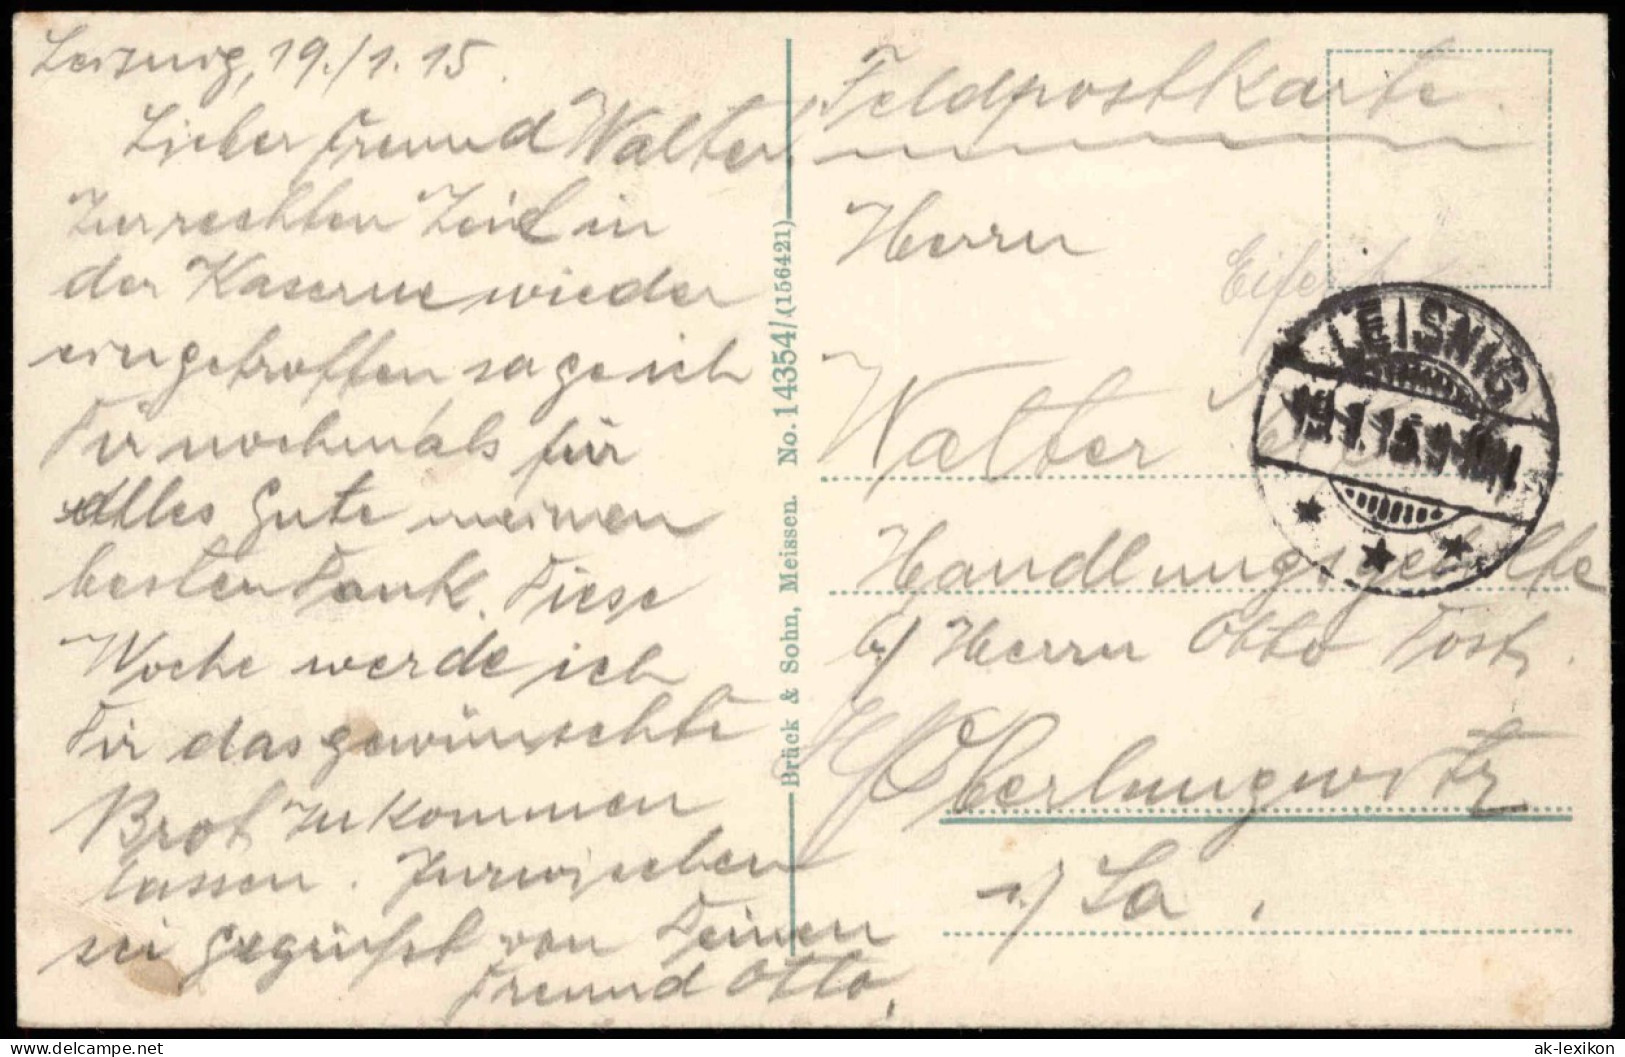 Leisnig, 19./1.15.
Lieber Freund Walter!
Zur rechten Zeit in
der Kaserne wieder
eingetroffen sage ich
Dir nochmals für
alles Gute meinen
besten Dank. Diese
Woche werde ich
Dir das gewünschte
Brot zukommen
lassen. Zurwischen
sei gegrüßt von Deinen
Freund Otto.
Brück & Sohn, Meissen. No. 14354/(156421)
Feldpostkarte.
Herrn
Walter
Handlungsgehilfe
b/ Herrn Otto Tost.
Oberlungwitz
i./ Sa.
LEISNIG
19.1.15.9-10N.
delcampe.net
ak-lexikon